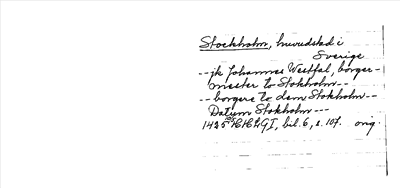 Stockholm, huvudstad i
Sverige
--jk Johannes Westfal, borger-
mester to Stokholm--
--borgere to dem Stokholm--
Datum Stokholm---
1425 bil. 6, s. 107. orig.